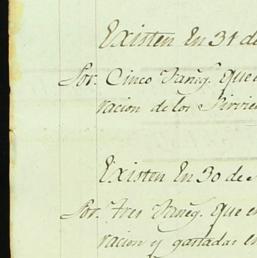 Existen En 31 de
Por. Cinco Fañeg. que
racion de los Sirvie
Existen En 30 de
Por. Tres Fañeg. que en
racion y gastadas en